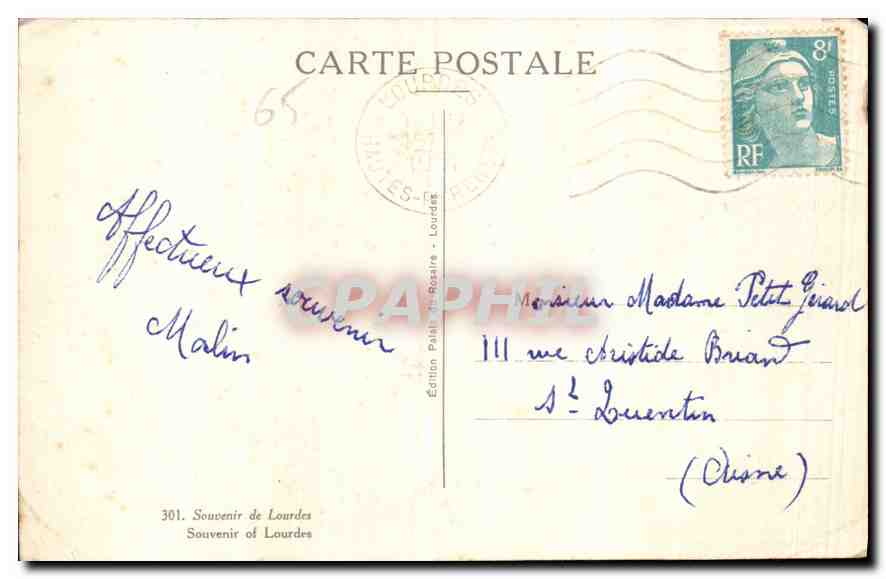 CARTE POSTALE
8F
POSTES
RF
65
LOURDES
HAUTES-PYRENEES
Affectueux souvenir
Malin
Monsieur Madame Petit Gérard
111 rue Aristide Briand
St Quentin
(Aisne)
Édition Palais du Rosaire - Lourdes
CPAPHIL
301. Souvenir de Lourdes
Souvenir of Lourdes